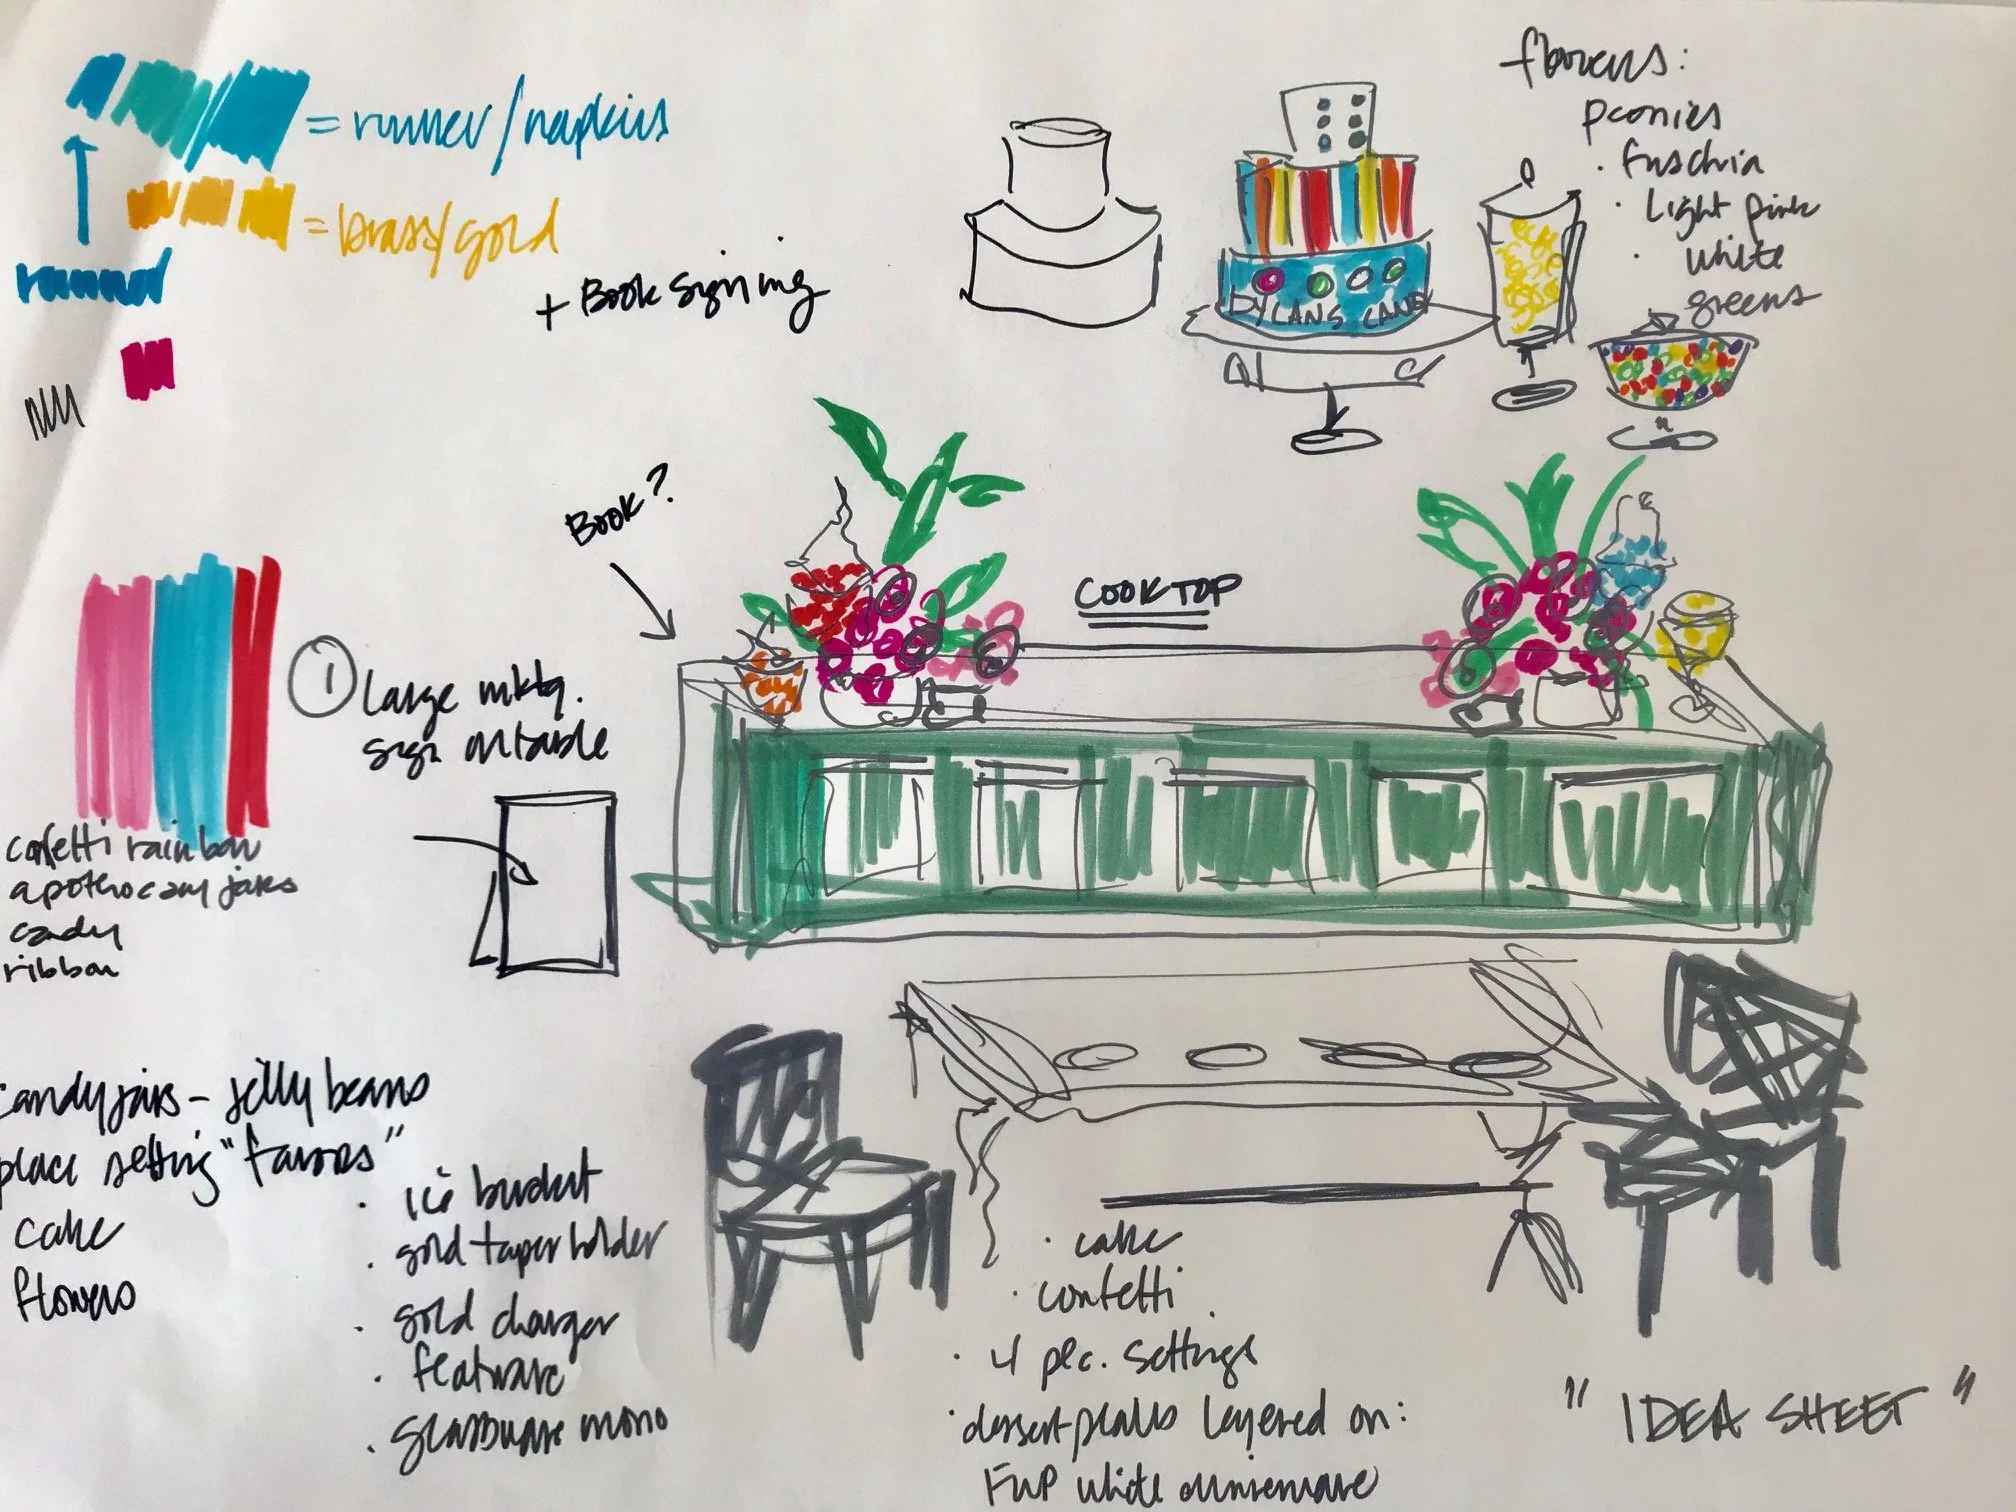 = runner/napkins
= brass/gold
runner
+ Book signing
flowers:
peonies
· fuschia
· light pink
· white
greens
DYLANS CANDY
Book?
COOKTOP
① Large mktg.
sign on table
confetti rainbow
apothocary jars
candy
ribbon
candy jars - jelly beans
place setting "favors"
cake
flowers
· ice bucket
· gold taper holder
· gold charger
· flatware
· glassware mono
· cake
· confetti
· 4 plc. settings
· dessert plates layered on:
white dinnerware
"IDEA SHEET"